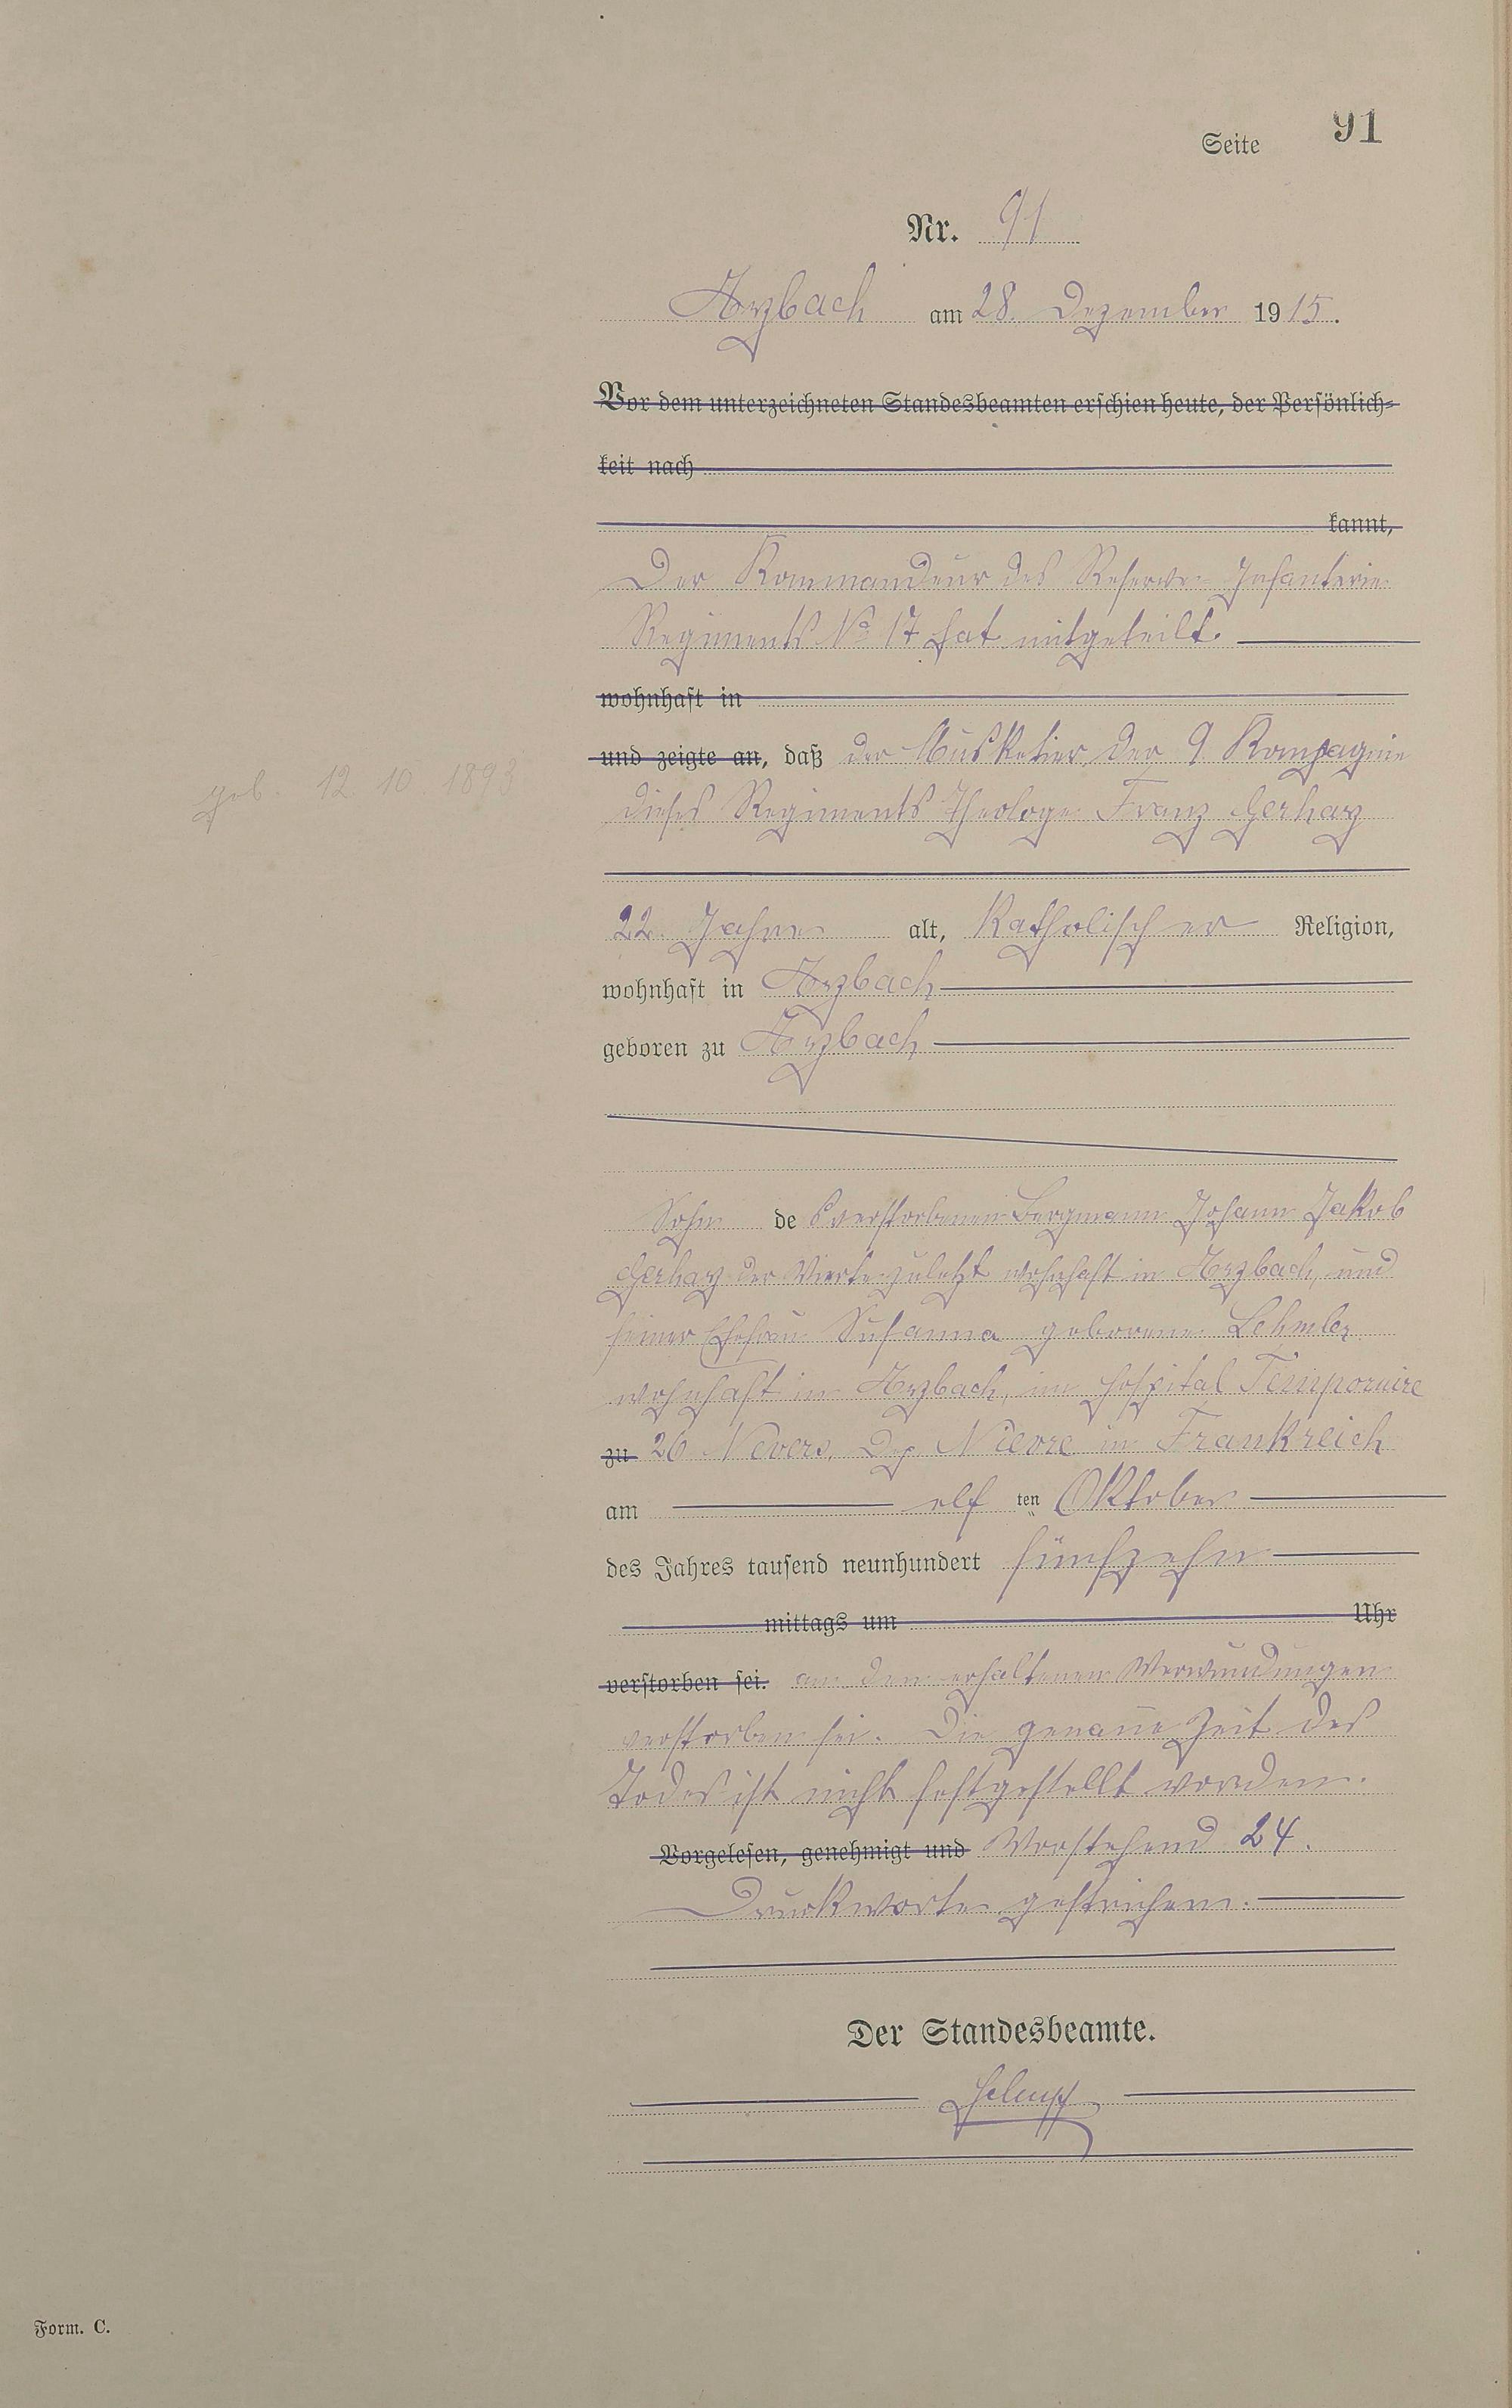 Seite 91
Nr. 91
Arzbach am 28. Dezember 1915.
Vor dem unterzeichneten Standesbeamten erschien heute, der Persönlich-
keit nach
kannt,
Der Kommandeur des Reserve-Infanterie
Regiments No 17 hat mitgeteilt.
wohnhaft in
und zeigte an, daß der Musketier der 9. Kompagnie
geb. 12. 10. 1893
dieses Regiments Theologe Franz Gerharz
22 Jahre alt, katholischer Religion,
wohnhaft in Arzbach
geboren zu Arzbach
Sohn des verstorbenen Bergmann Johann Jakob
Gerharz der Vierte zuletzt wohnhaft in Arzbach, und
seiner Ehefrau Susanna geborene
wohnhaft in Arzbach, im Hospital Temporaire
zu 26 Nevers, Dep. Nievre in Frankreich
am elf ten Oktober
des Jahres tausend neunhundert fünfzehn
mittags um Uhr
verstorben sei. an den erhaltenen Verwundungen
verstorben sei. Die genaue Zeit des
Todes ist nicht festgestellt worden.
Vorgelesen, genehmigt und Vorstehend 24.
Druckworte gestrichen.
Der Standesbeamte.
Form. C.